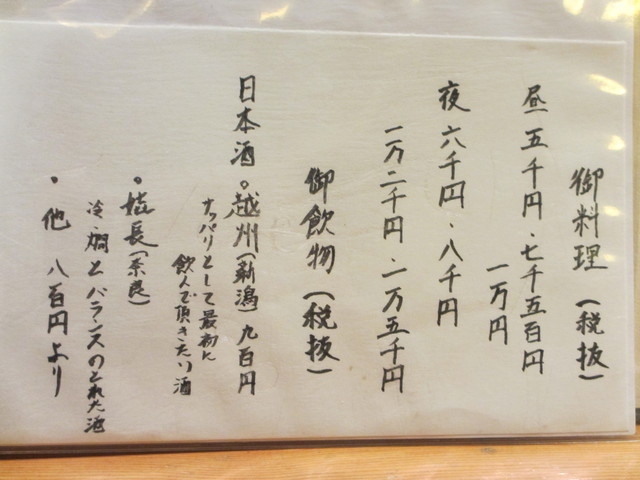 御料理（税抜）
昼 五千円・七千五百円
一万円
夜 六千円・八千円
一万二千円・一万五千円
御飲物（税抜）
日本酒 越州（新潟）九百円
サッパリとして最初に
飲んで頂きたい酒
・ 長（奈良）
冷・燗とバランスのとれた酒
・他 八百円より